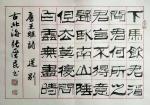 下馬飲君酒
問君何所之
君言不得意
歸臥南山陲
但去莫復問
白雲無盡時
唐王維詩 送別
古北海張民書